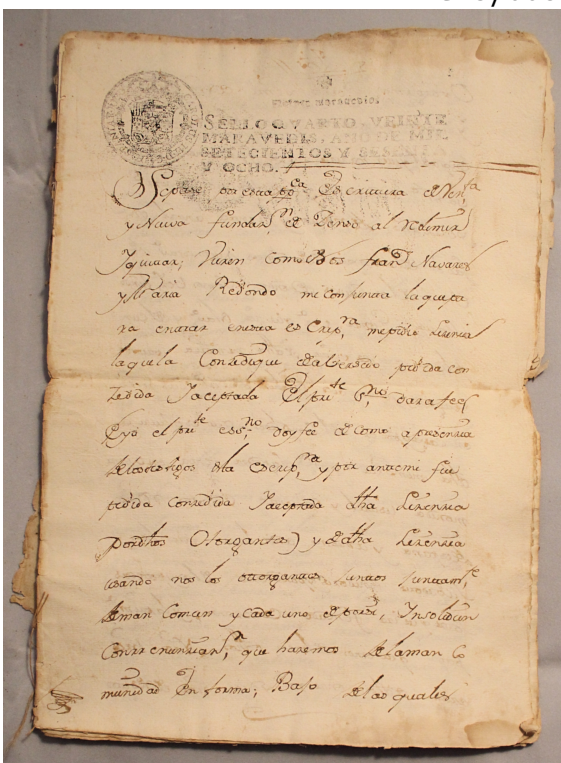 SELLO QVARTO, VEINTE
MARAVEDIS, AÑO DE MIL
SETECIENTOS Y SESENTA
Y OCHO.
Sepase por esta pp.ca Escritura de Venta
y Nueva fundaz.n de Zenso al Redimir
y quitar, Vieren como Nos fran.co Navarro
y Maria Redondo mi Conjunta la que pa
ra entrar en esta es Crip.ra me pidio Lizencia
la que la Conzedi que de aberse pedido con
zedida y aceptada el pre.te es.no dara fee
Eyo el pre.te ess.no doy fee de como a presenzia
de los testigos de la escrip.ra y por ante mi fue
pedida conzedida y aceptada dha Lizenzia
por dhos Otorgantes) y de dha Lizenzia
usando nos los otorgantes juntos juntam.te
de man Comun y cada uno de por si, Insolidun
Con rrenunziaz.n que hazemos de la man Co
munidad en forma; Bajo de las quales